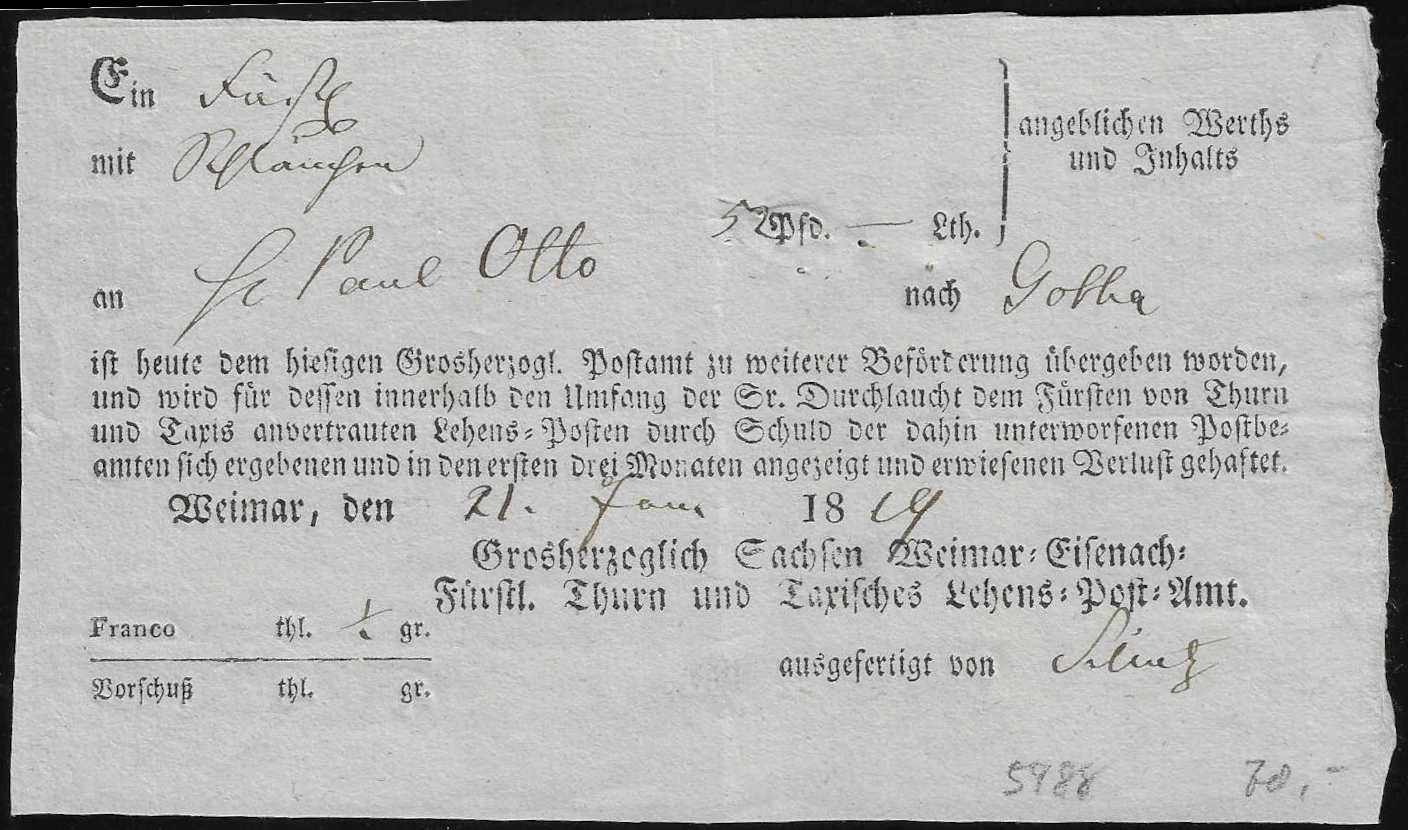 Ein
mit
angeblichen Werths
und Inhalts
52 Pfd. — Lth.
an Paul Otto nach Gotha
ist heute dem hiesigen Grosherzogl. Postamt zu weiterer Beförderung übergeben worden,
und wird für dessen innerhalb den Umfang der Sr. Durchlaucht dem Fürsten von Thurn
und Taxis anvertrauten Lehens-Posten durch Schuld der dahin unterworfenen Postbe-
amten sich ergebenen und in den ersten drei Monaten angezeigt und erwiesenen Verlust gehaftet.
Weimar, den 21. 1819
Grosherzoglich Sachsen Weimar-Eisenach-
Fürstl. Thurn und Taxisches Lehens-Post-Amt.
Franco thl. gr.
ausgefertigt von
Vorschuß thl. gr.
5988 70,-